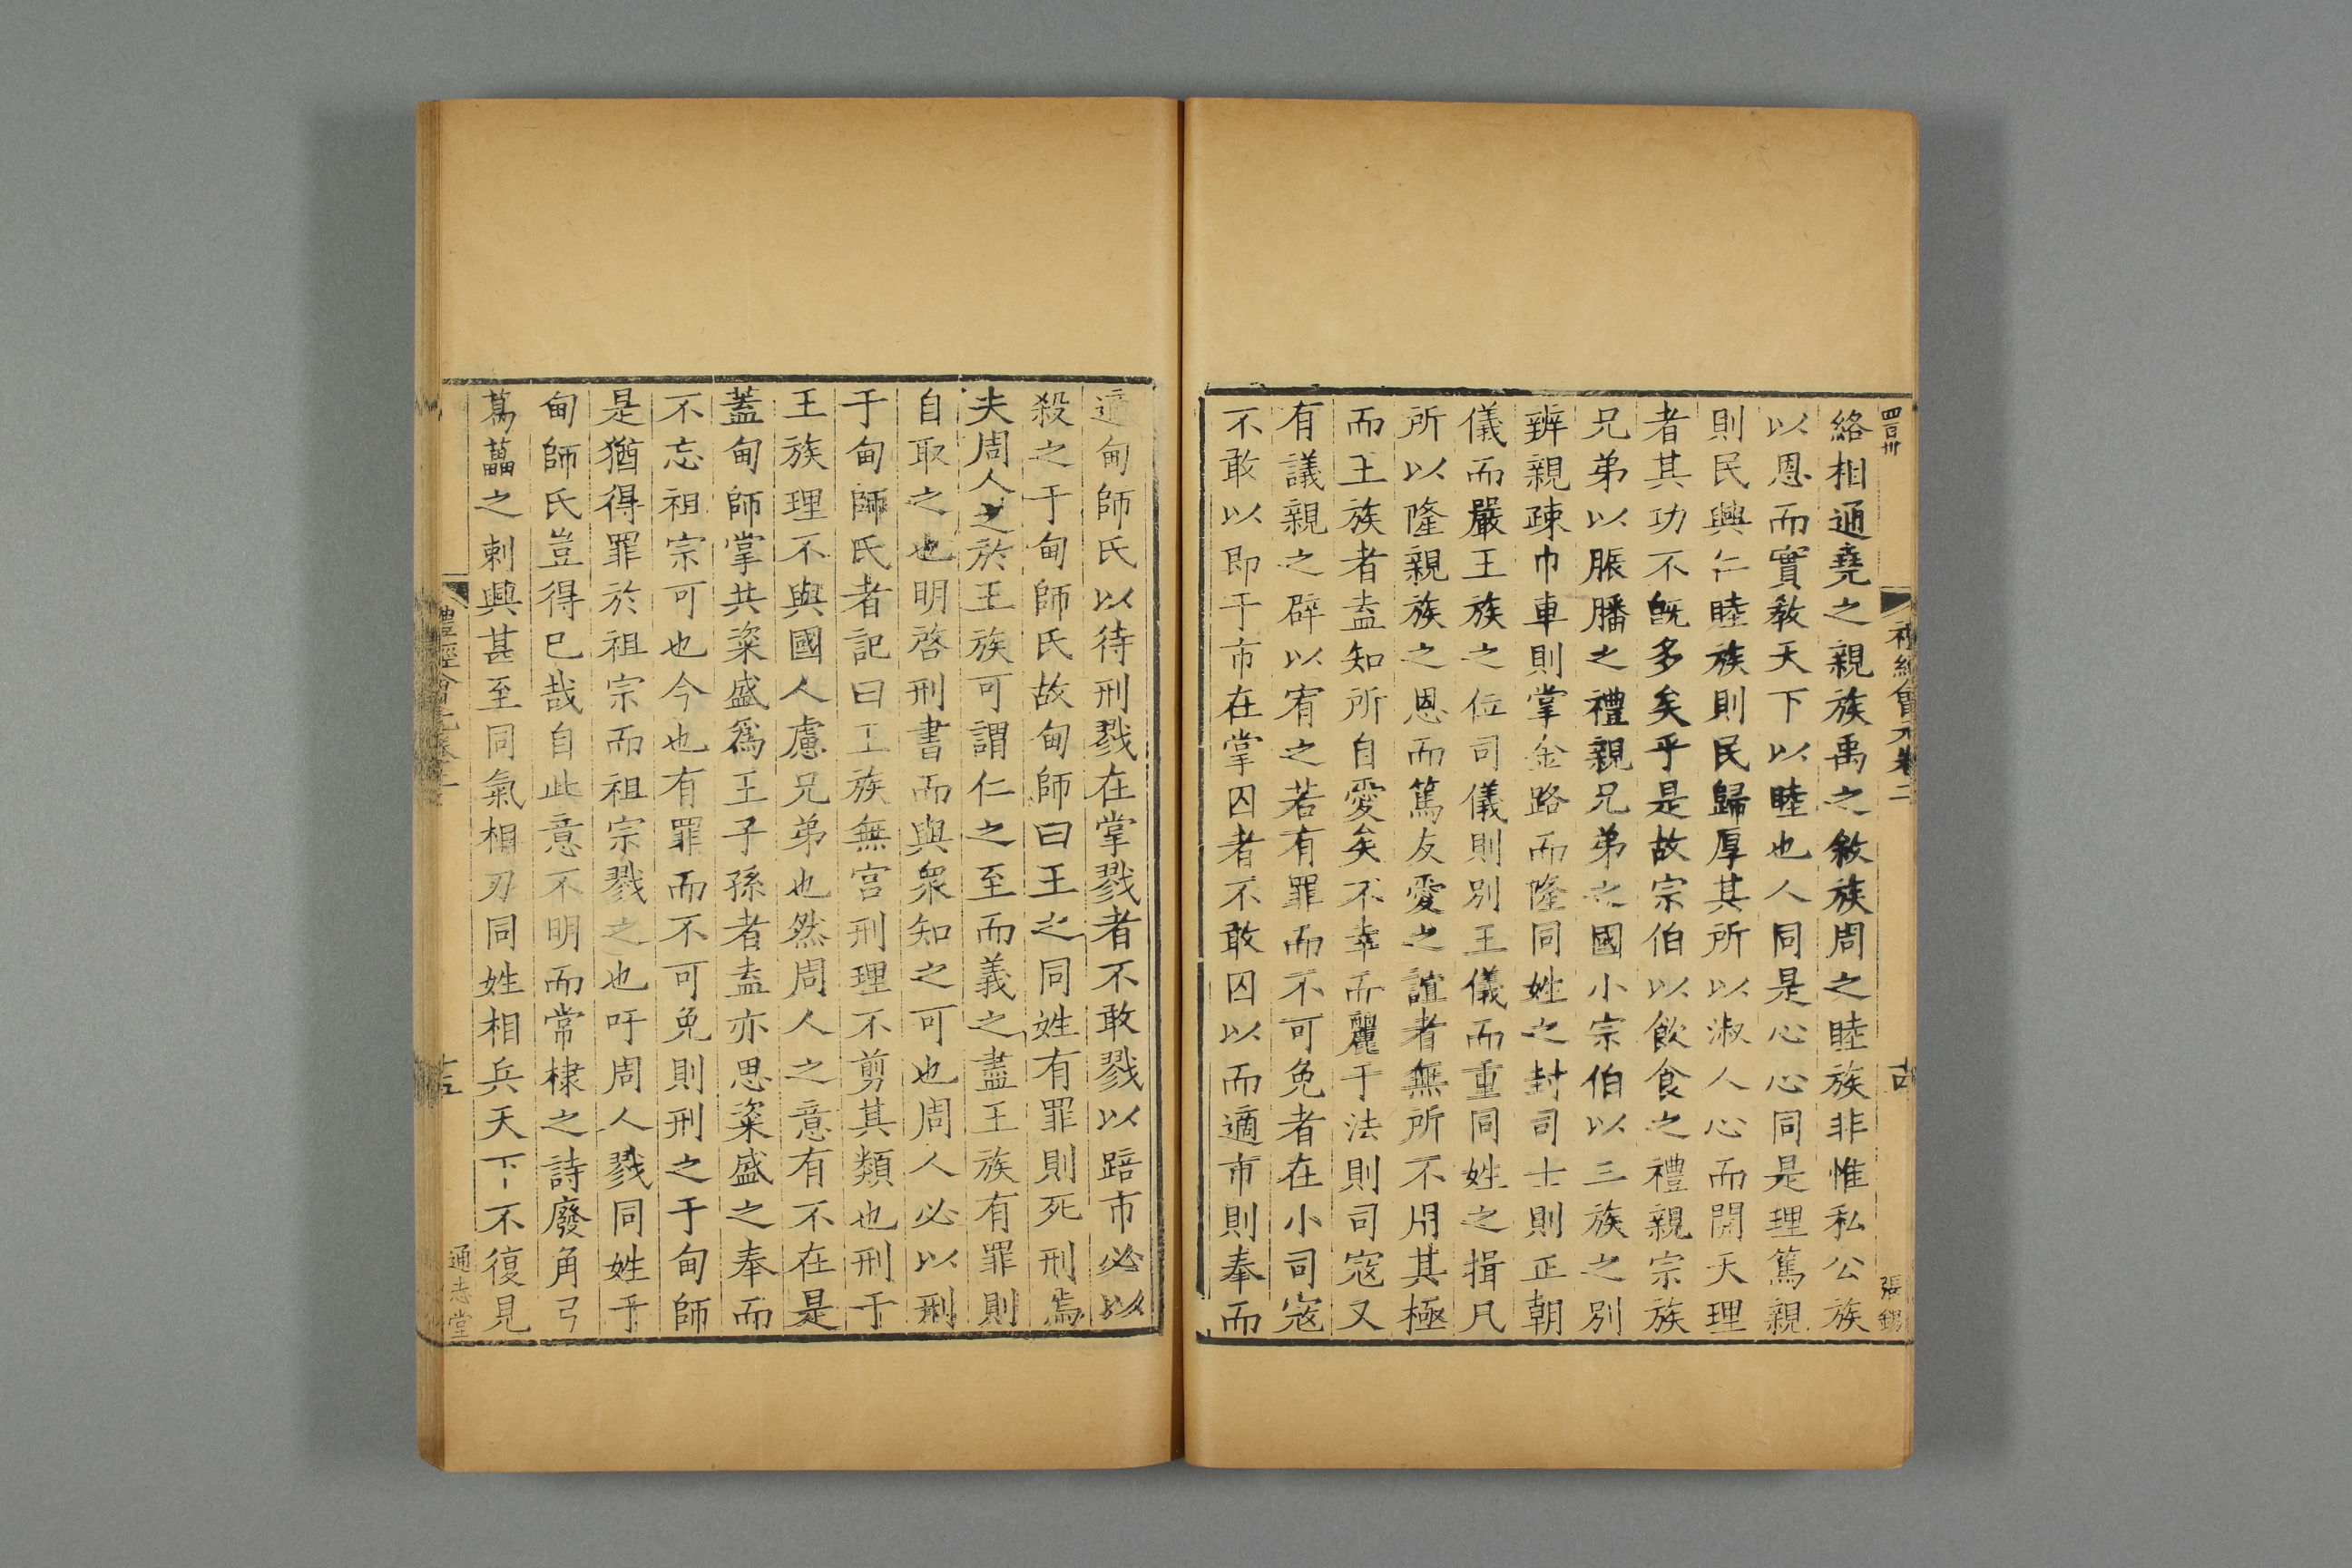 四百卅
禮經會元卷二
古
張錫
絡相通堯之親族禹之敘族周之睦族非惟私公族
以恩而實教天下以睦也人同是心心同是理篤親
則民興仁睦族則民歸厚其所以淑人心而開天理
者其功不旣多矣乎是故宗伯以飲食之禮親宗族
兄弟以脤膰之禮親兄弟之國小宗伯以三族之別
辨親疎巾車則掌金路而隆同姓之封司士則正朝
儀而嚴王族之位司儀則別王儀而重同姓之揖凡
所以隆親族之恩而篤友愛之誼者無所不用其極
而王族者盍知所自愛矣不幸而麗于法則司寇又
有議親之辟以宥之若有罪而不可免者在小司寇
不敢以即于市在掌囚者不敢囚以而適市則奉而
適甸師氏以待刑戮在掌戮者不敢戮以踣市必以
殺之于甸師氏故甸師曰王之同姓有罪則死刑焉
夫周人之於王族可謂仁之至而義之盡王族有罪則
自取之也明啓刑書而與衆知之可也周人必以刑
于甸師氏者記曰王族無宮刑理不剪其類也刑于
王族理不與國人慮兄弟也然周人之意有不在是
蓋甸師掌共粢盛爲王子孫者盍亦思粢盛之奉而
不忘祖宗可也今也有罪而不可免則刑之于甸師
是猶得罪於祖宗而祖宗戮之也吁周人戮同姓于
甸師氏豈得已哉自此意不明而常棣之詩廢角弓
葛藟之刺興甚至同氣相刃同姓相兵天下不復見
禮經會元卷二
十五
通志堂